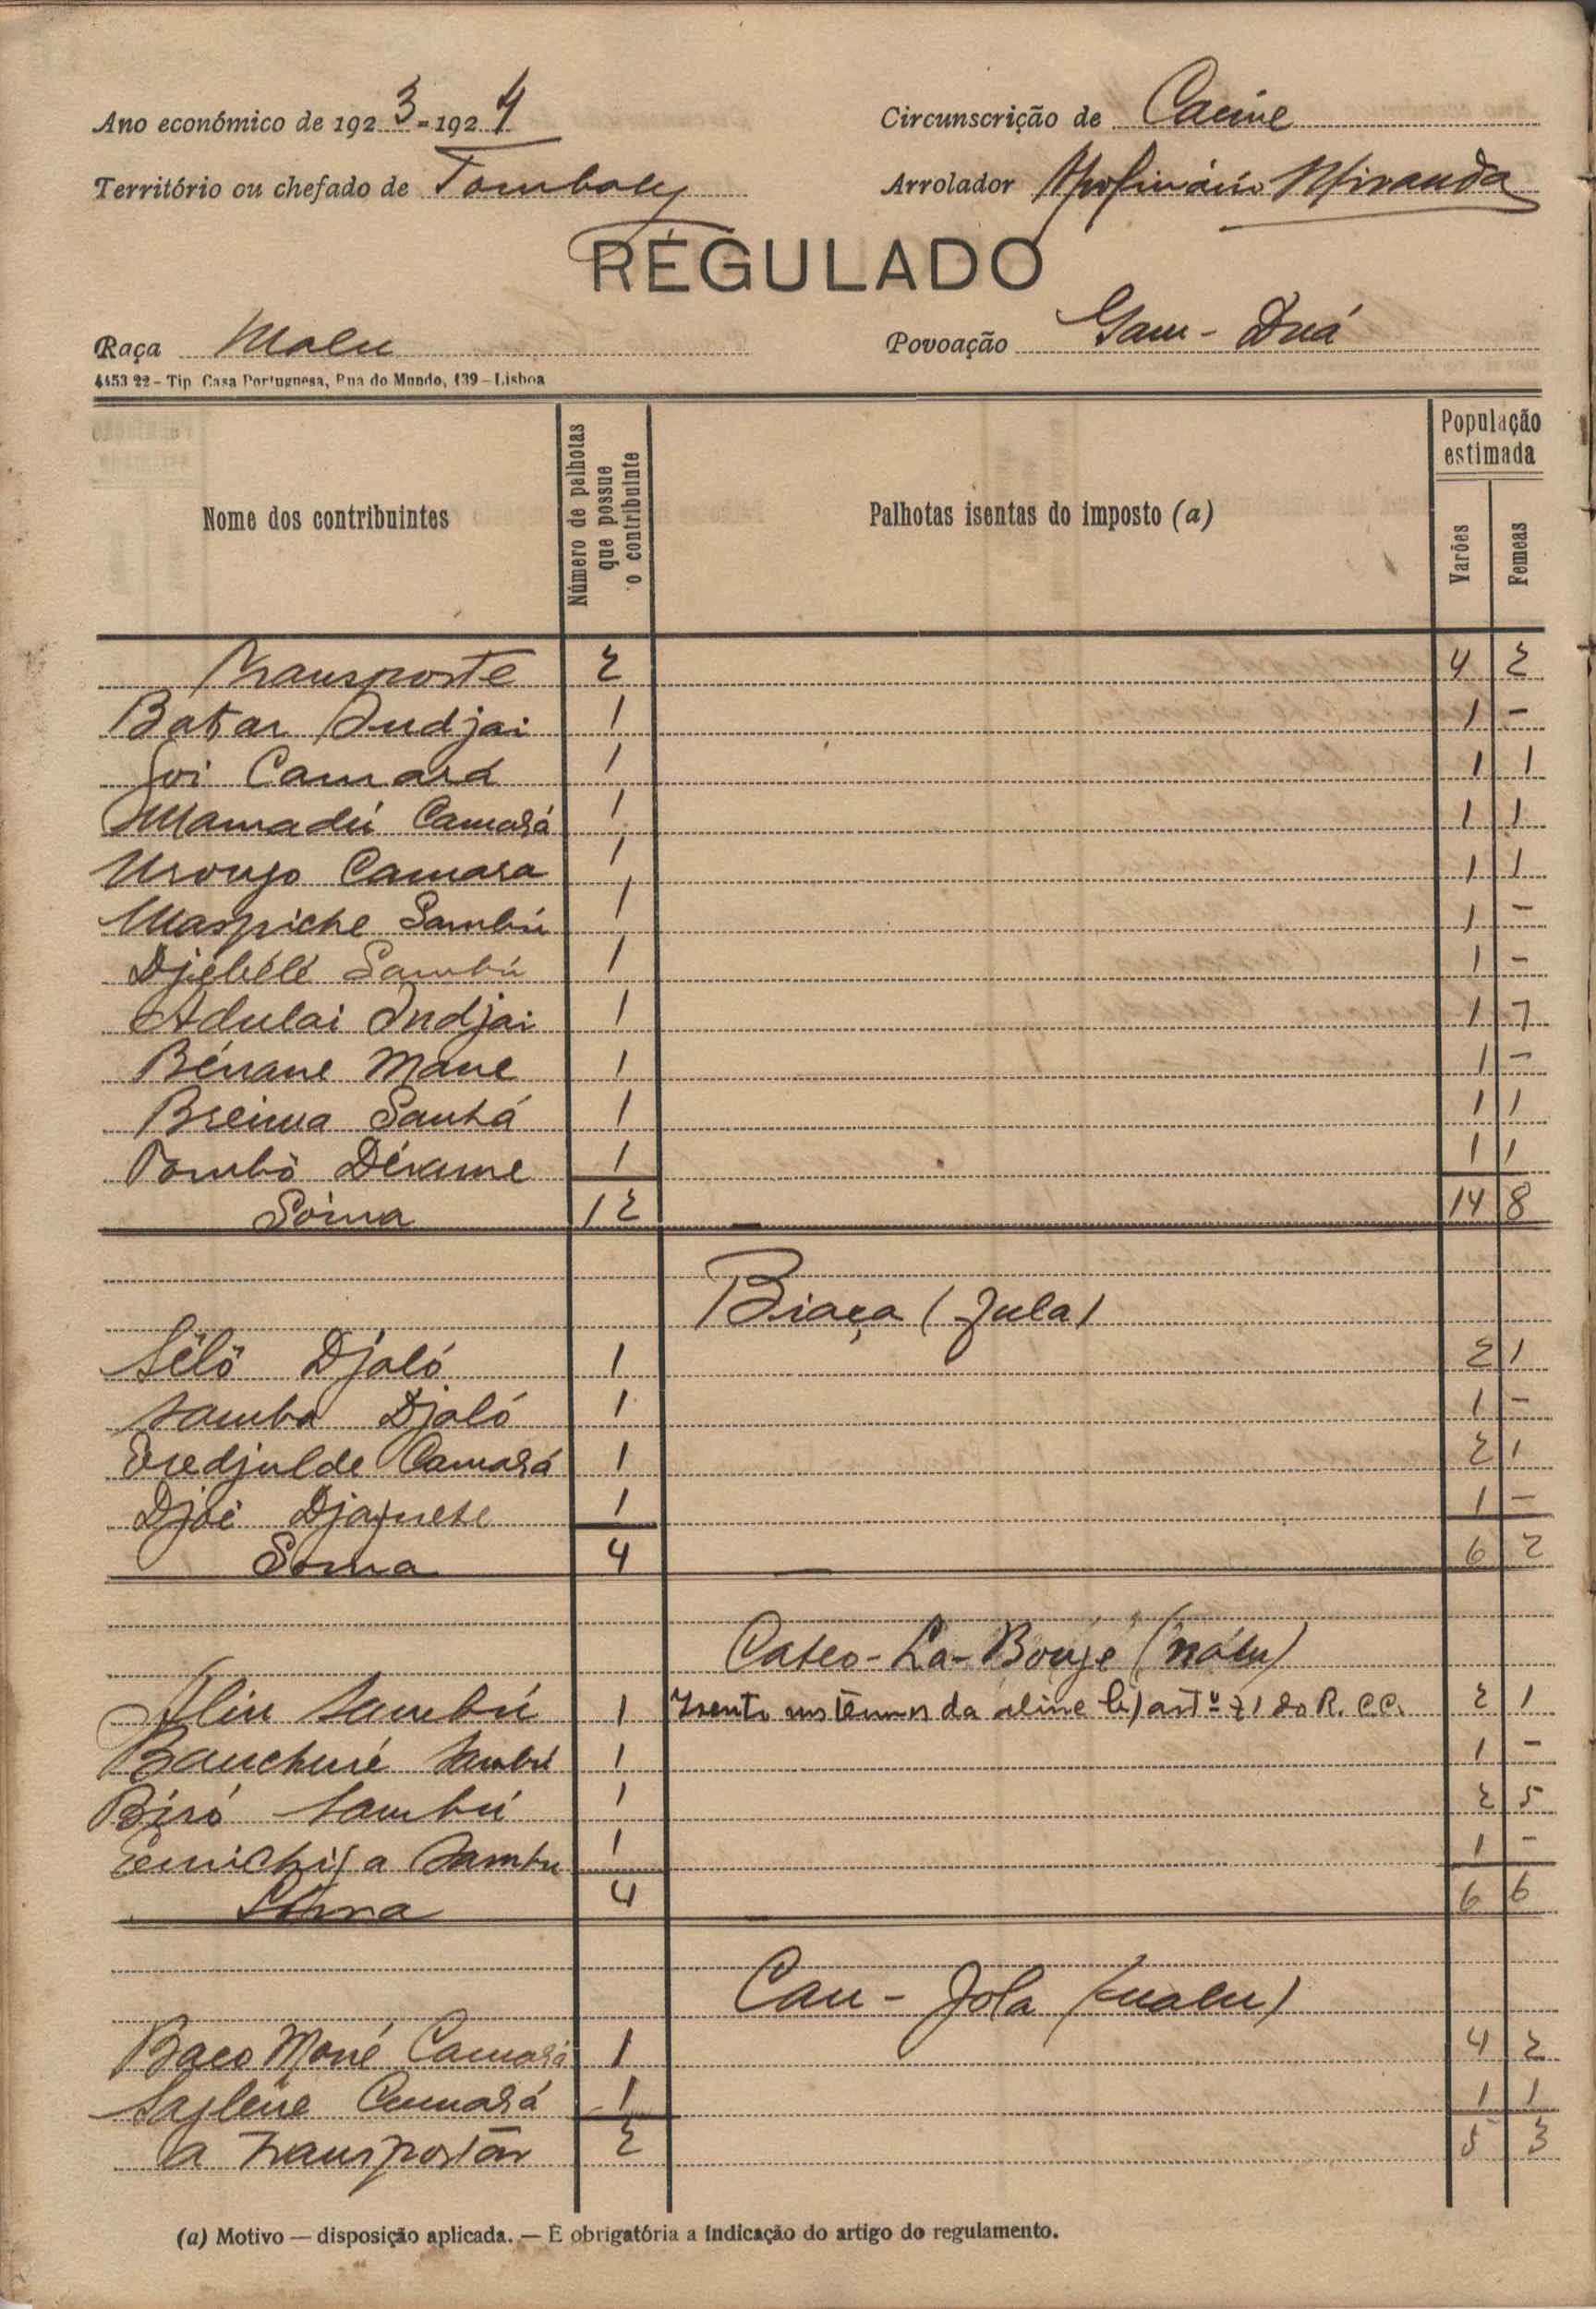 Ano económico de 1923-1924
Circunscrição de Cacine
Território ou chefado de Tombaly
Arrolador Apolinário Miranda
RÉGULADO
Raça Nalu
Povoação Gam-Duá
4453 22 - Tip Casa Portuguesa, Rua do Mundo, 139 - Lisboa
Nome dos contribuintes
Número de palhotas que possue o contribuinte
Palhotas isentas do imposto (a)
População estimada
Varões
Femeas
Transporte 2 4 2
Bakar Indjai 1 1 -
Soi Camará 1 1 1
Mamadú Camará 1 1 1
Camara 1 1 1
Maspiche Sambú 1 1 -
Djébélé Sambú 1 1 -
Adulai Indjai 1 1 1
Bénane Mane 1 1 -
Breima Sanhá 1 1 1
Tombô Dérame 1 1 1
Sôma 12 — 14 8
Biaça (Fula)
Sêlô Djaló 1 2 1
Samba Djaló 1 1 -
Camará 1 2 1
Djaé 1 1 -
Soma 4 — 6 2
Cateo-La-Bougé (nálu)
Aliu Sambú 1 Isento nos têrmos da aline b) artº 21 do R. C.C. 2 1
Sambú 1 1 -
Biró Sambú 1 2 5
Sambu 1 1 -
Sôma 4 6 6
Cau-Jola (nalu)
Baco Mané Camará 1 4 2
Camará 1 1 1
a transportar 2 5 3
(a) Motivo — disposição aplicada. — É obrigatória a indicação do artigo do regulamento.